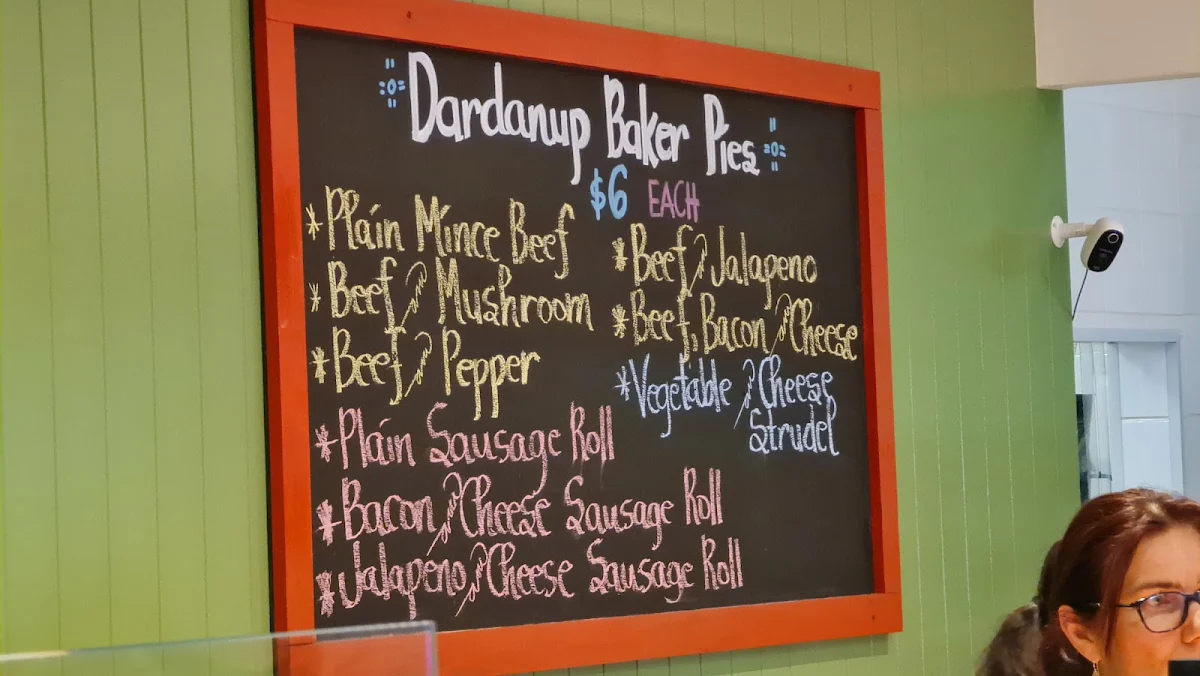 Dardanup Baker Pies
$6 EACH
*Plain Mince Beef
*Beef & Mushroom
*Beef & Pepper
*Beef & Jalapeno
*Beef, Bacon & Cheese
*Vegetable & Cheese
Strudel
*Plain Sausage Roll
*Bacon & Cheese Sausage Roll
*Jalapeno & Cheese Sausage Roll